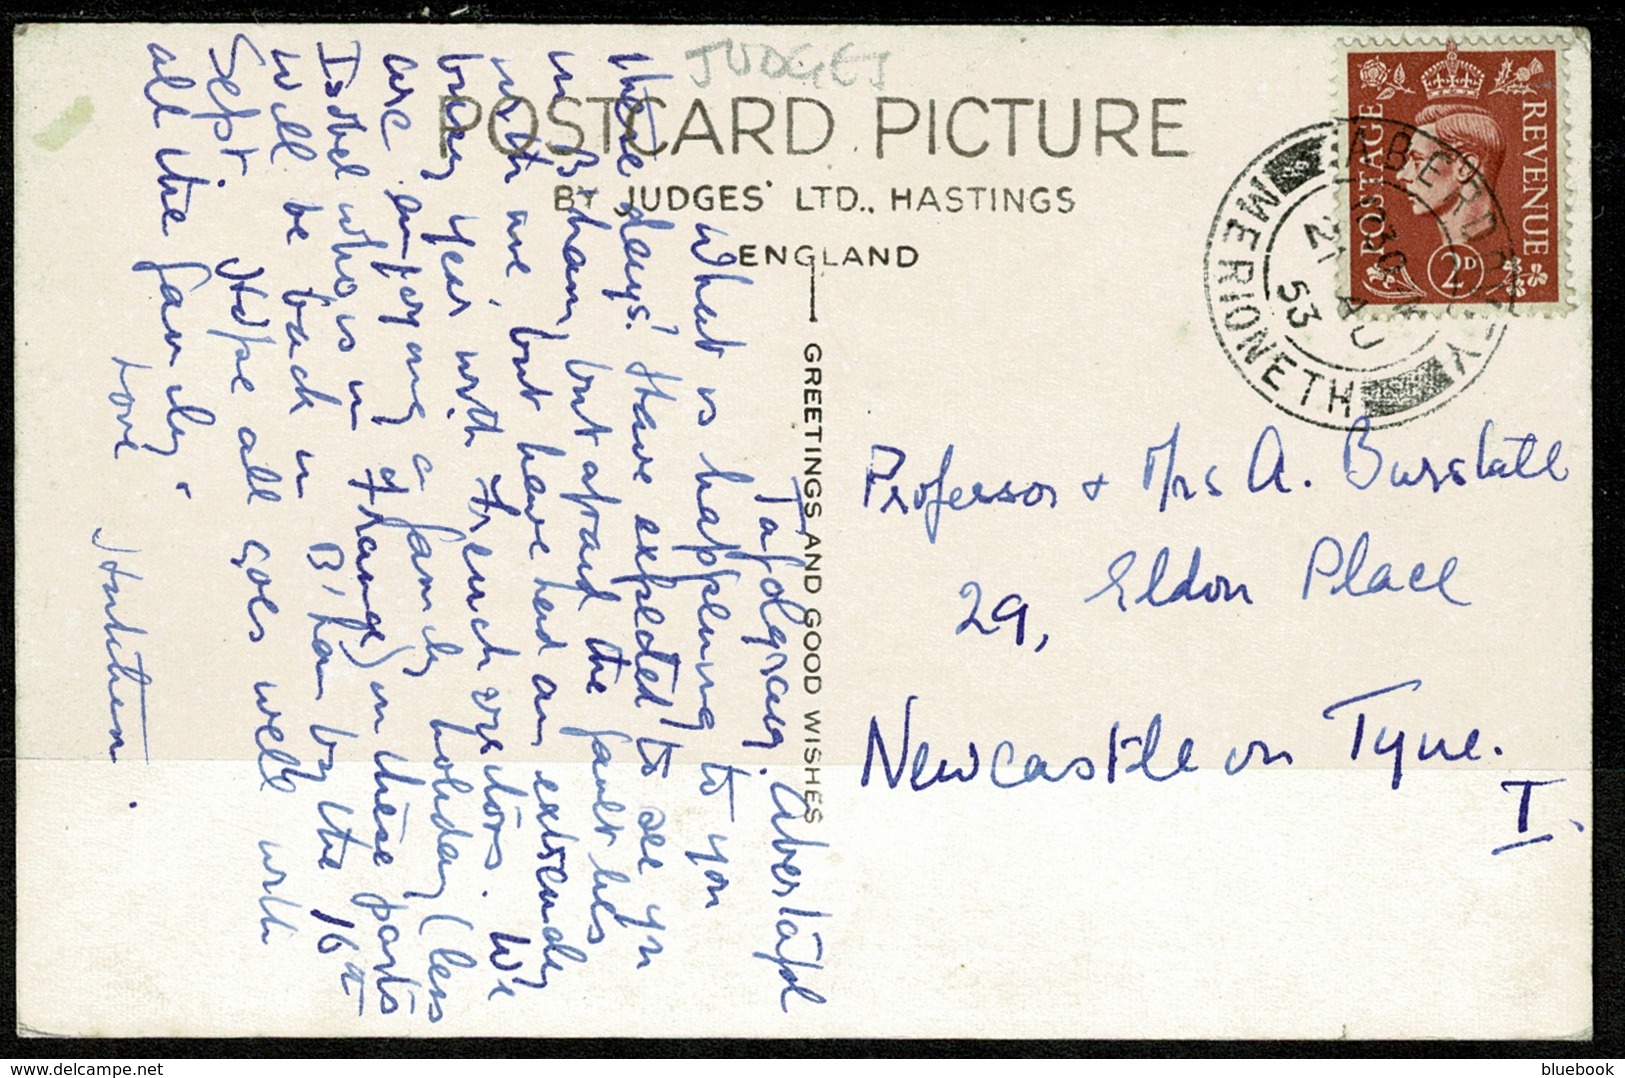 JUDGES
POSTCARD PICTURE
BY JUDGES' LTD., HASTINGS
ENGLAND
GREETINGS AND GOOD WISHES
POSTAGE REVENUE
2D
ABERDOVEY
MERIONETH
21 AU
53
Professor & Mrs A. Burstall
29, Eldon Place
Newcastle on Tyne.
I.
Tafdgraig, Abertafol
What is happening to you
these days. Have expected to see you
in B'ham, but afraid the fault lies
with me, but have had an extremely
busy year with French visitors. We
are enjoying a family holiday (less
Isobel who is in France) in these parts
will be back in B'ham by the 16th
Sept. Hope all goes well with
all the family.
Love
bluebook